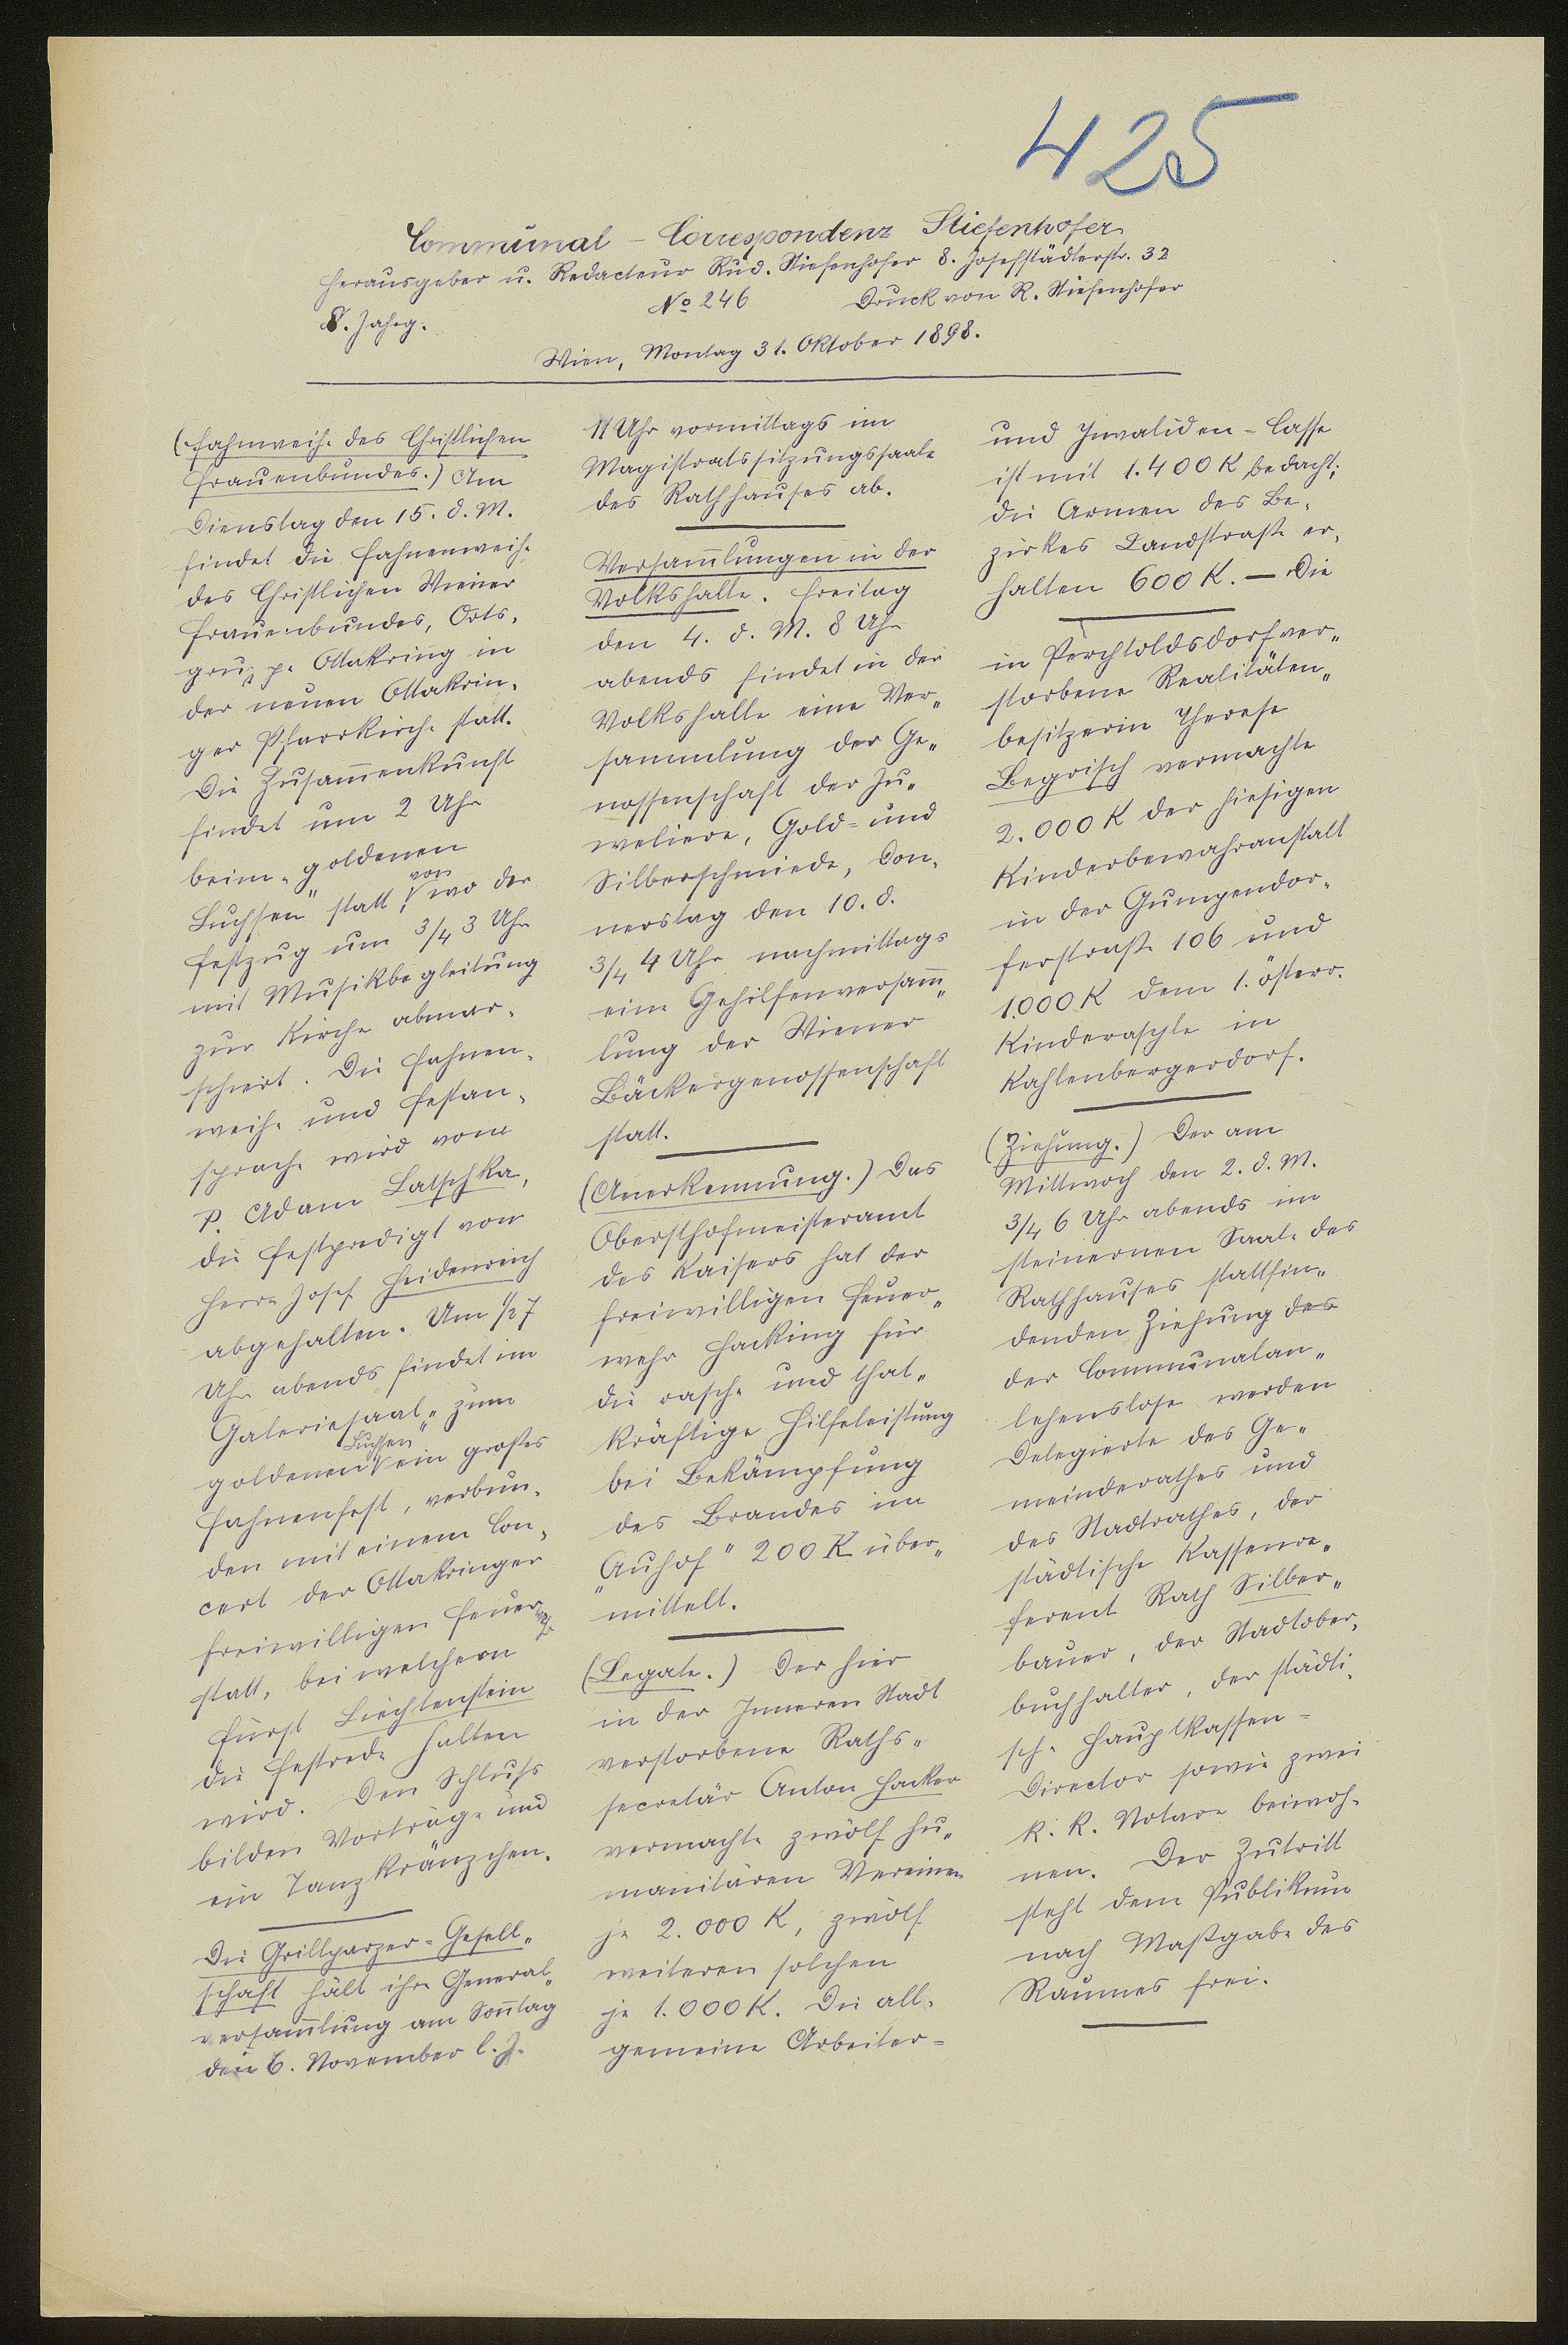 425
Communal-Correspondenz Stiefenhofer
Herausgeber u. Redacteur Rud. Stiefenhofer 8. Josefstädterstr. 32
8. Jahrg.
No 246
Druck von R. Stiefenhofer
Wien, Montag 31. Oktober 1898.
(Fahnweihe des Christlichen
Frauenbundes.) Am
Dienstag den 15. d. M.
findet die Fahnenweihe
des Christlichen Wiener
Frauenbundes, Orts-
gruppe Ottakring in
der neuen Ottakrin-
ger Pfarrkirche statt.
Die Zusam̄enkunft
findet um 2 Uhr
beim „goldenen
Luchsen" statt, von wo der
Festzug um 3/4 3 Uhr
mit Musikbegleitung
zur Kirche abmar-
schiert. Die Fahnen-
weihe und Festan-
sprache wird vom
P. Adam Latschka,
die Festpredigt von
Herrn Josef Heidenreich
abgehalten. Um 1/2 7
Uhr abends findet im
Galeriesaal „zum
goldenen Luchsen" ein großes
Fahnenfest, verbun-
den mit einem Con-
cert der Ottakringer
freiwilligen Feuerwehr
statt, bei welchem
Fürst Liechtenstein
die Festrede halten
wird. Den Schluss
bilden Vorträge und
ein Tanzkränzchen.
Die Grillparzer-Gesell-
schaft hält ihre General-
versam̄lung am Son̄tag
den 6. November l. J.
11 Uhr vormittags im
Magistratssitzungssaale
des Rathhauses ab.
Versam̄lungen in der
Volkshalle. Freitag
den 4. d. M. 8 Uhr
abends findet in der
Volkshalle eine Ver-
sammlung der Ge-
nossenschaft der Ju-
weliere, Gold- und
Silberschmiede, Don-
nerstag den 10. d.
3/4 4 Uhr nachmittags
eine Gehilfenversam̄-
lung der Wiener
Bäckergenossenschaft
statt.
(Anerkennung.) Das
Obersthofmeisteramt
des Kaisers hat der
freiwilligen Feuer-
wehr Hacking für
die rasche und that-
kräftige Hilfeleistung
bei Bekämpfung
des Brandes im
„Auhof" 200 K über-
mittelt.
(Legate.) Der hier
in der Inneren Stadt
verstorbene Raths-
secretär Anton Hacker
vermachte zwölf hu-
manitären Vereinen
je 2.000 K, zwölf
weiteren solchen
je 1.000 K. Die all-
gemeine Arbeiter-
und Invaliden-Casse
ist mit 1.400 K bedacht;
die Armen des Be-
zirkes Landstraße er-
halten 600 K. — Die
in Perchtoldsdorf ver-
storbene Realitäten-
besitzerin Therese
Begrisch vermachte
2.000 K der hiesigen
Kinderbewahranstalt
in der Gumpendor-
ferstraße 106 und
1.000 K dem 1. österr.
Kinderasyle in
Kahlenbergerdorf.
(Ziehung.) Der am
Mittwoch den 2. d. M.
3/4 6 Uhr abends im
steinernen Saale des
Rathhauses stattfin-
denden Ziehung des
der Communalan-
lehenslose werden
Delegierte des Ge-
meinderathes und
des Stadtrathes, der
städtische Kassenre-
ferent Rath Silber-
bauer, der Stadtober-
buchhalter, der städti-
sche Hauptkassen-
Director sowie zwei
k. k. Notare beiwoh-
nen. Der Zutritt
steht dem Publikum
nach Maßgabe des
Raumes frei.